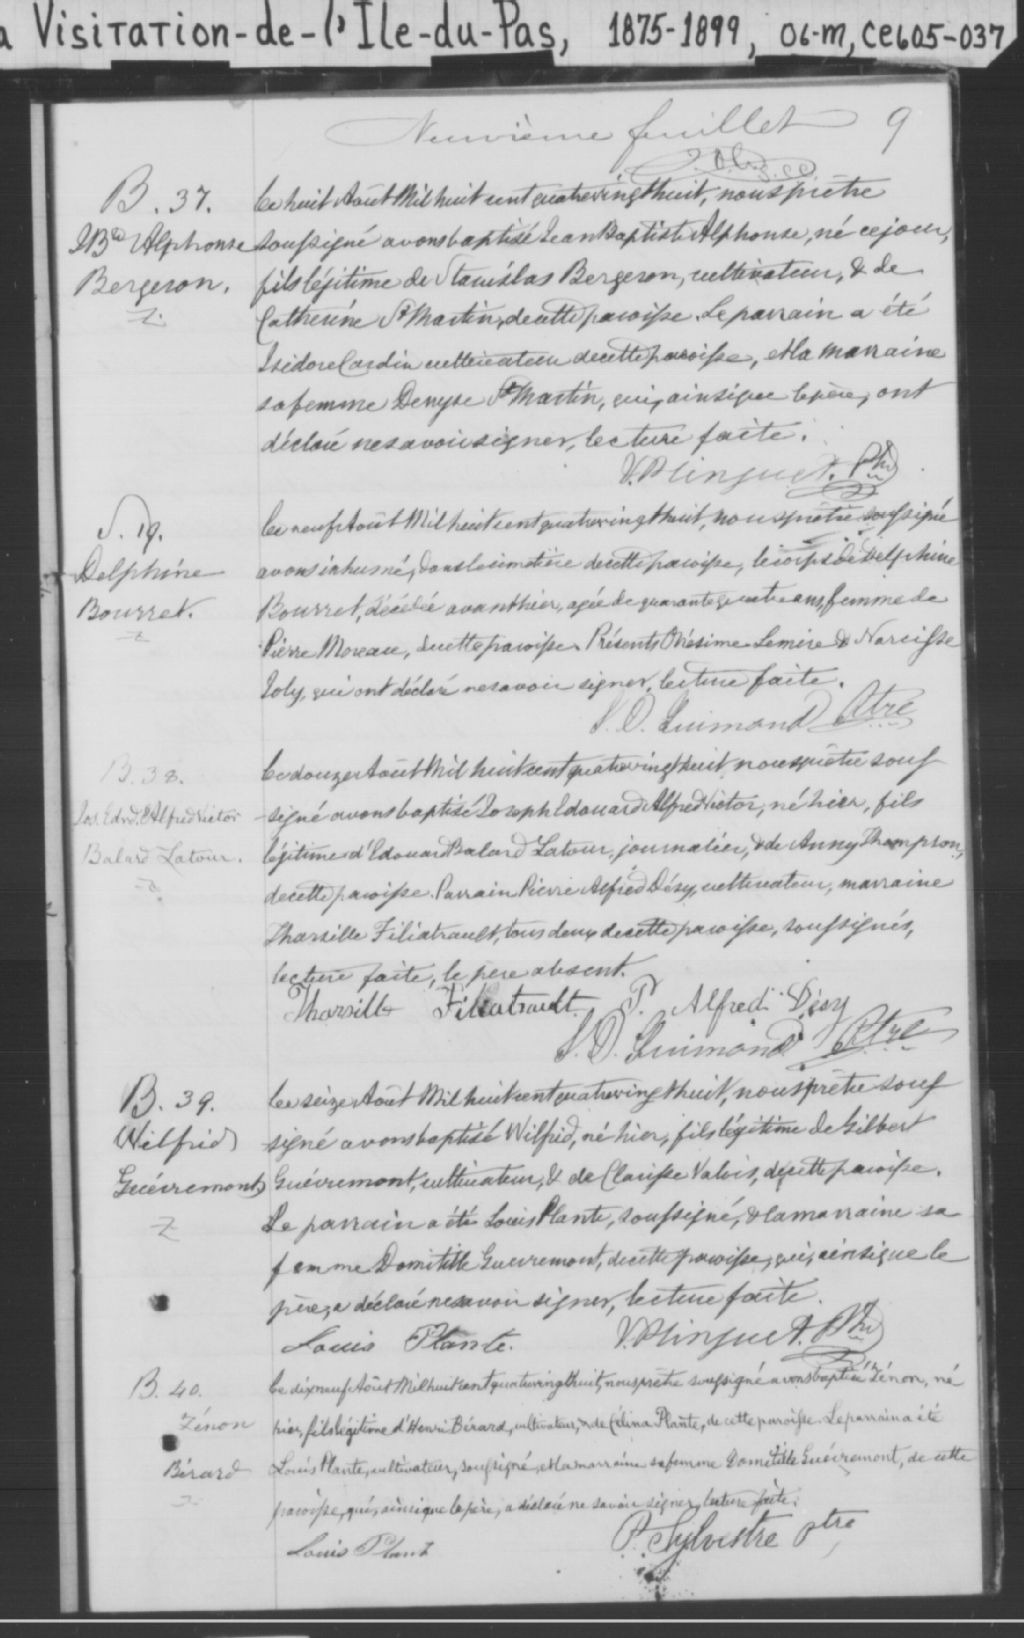 a Visitation-de-l'Ile-du-Pas, 1875-1899, 06-m, CE605-037
Neuvième feuillet 9
B. 37.
JBte Alphonse
Bergeron.
Le huit Août Mil huit cent quatrevingt huit, nous prêtre
soussigné avons baptisé Jean Baptiste Alphonse, né ce jour,
fils légitime de Stanislas Bergeron, cultivateur, & de
Catherine St Martin, de cette paroisse. Le parrain a été
Isidore Cardin cultivateur de cette paroisse, et la marraine
sa femme Denyse St Martin, qui, ainsi que le père, ont
déclaré ne savoir signer, lecture faite.
V. Plinguet. Ptre
S. 19.
Delphine
Bourret.
Le neuf Août Mil huit cent quatrevingt huit, nous prêtre soussigné
avons inhumé, dans le cimetière de cette paroisse, le corps de Delphine
Bourret, décédée avant hier, agée de quarante quatre ans, femme de
Pierre Moreau, de cette paroisse. Présents Onésime Lemire & Narcisse
Joly, qui ont déclaré ne savoir signer, lecture faite.
S. O. Guimond Ptre
B. 38.
Jos. Edrd. Alfred Victor
Balard Latour.
Le douze Août Mil huit cent quatrevingt huit, nous prêtre sous
signé avons baptisé Joseph Edouard Alfred Victor, né hier, fils
légitime d'Edouard Balard Latour, journalier, & de Anny Thompson,
de cette paroisse. Parrain Pierre Alfred Désy, cultivateur, marraine
Tharsille Filiatrault, tous deux de cette paroisse, soussignés,
lecture faite, le père absent.
Tharsille Filiatrault P. Alfred Désy
S. O. Guimond Ptre
B. 39.
Wilfrid
Guévremont
Le seize Août Mil huit cent quatrevingt huit, nous prêtre sous
signé avons baptisé Wilfrid, né hier, fils légitime de Gilbert
Guévremont, cultivateur, & de Clarisse Valois, de cette paroisse.
Le parrain a été Louis Plante, soussigné, & la marraine sa
femme Domitille Guevremont, de cette paroisse, qui, ainsi que le
père, a déclaré ne savoir signer, lecture faite.
Louis Plante. V. Plinguet. Ptre
B. 40.
Zénon
Bérard
Le dix neuf Août Mil huit cent quatrevingt huit, nous prêtre soussigné avons baptisé Zénon, né
hier, fils légitime d'Henri Bérard, cultivateur, & de Célina Plante, de cette paroisse. Le parrain a été
Louis Plante, cultivateur, soussigné, et la marraine sa femme Domitille Guévremont, de cette
paroisse, qui, ainsi que le père, a déclaré ne savoir signer, lecture faite.
Louis Plant P. Sylvestre ptre